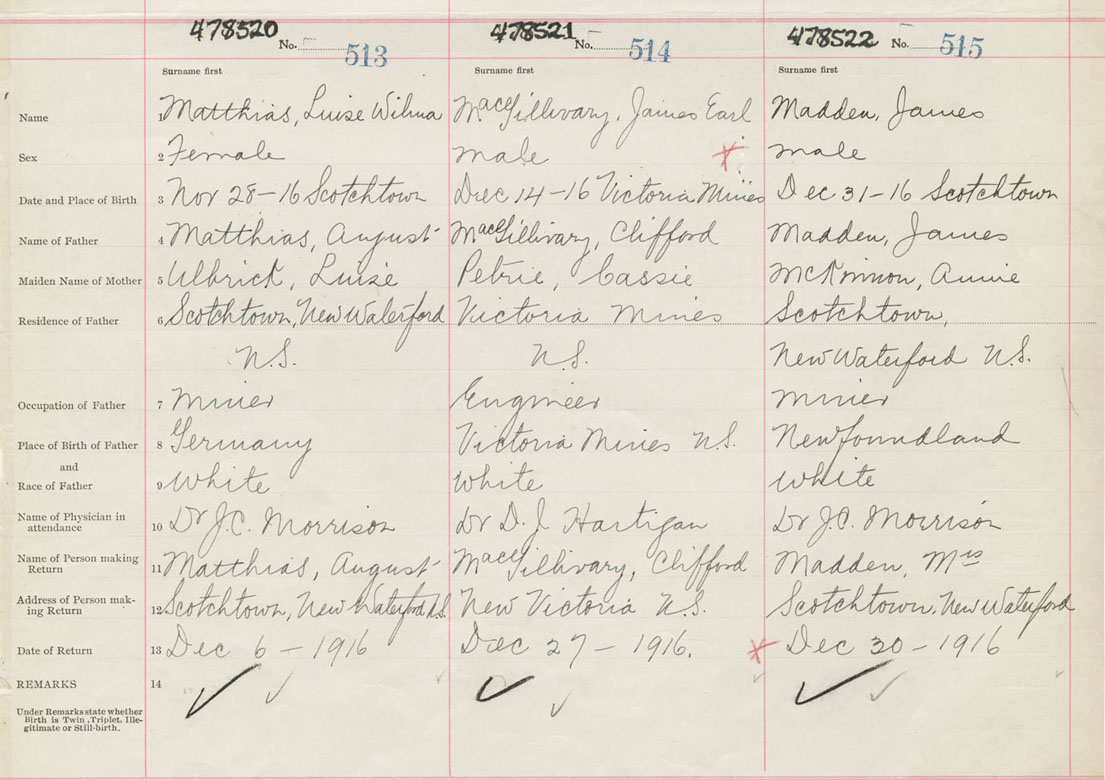 478520 No. 513 478521 No. 514 478522 No. 515
Surname first Surname first Surname first
Name 1 Matthias, Luise Wilma MacGillivary, James Earl Madden, James
Sex 2 Female male male
Date and Place of Birth 3 Nov 28-16 Scotchtown Dec 14-16 Victoria Mines Dec 31-16 Scotchtown
Name of Father 4 Matthias, August MacGillivary, Clifford Madden, James
Maiden Name of Mother 5 Ulbrick, Luise Petrie, Cassie McKinnon, Annie
Residence of Father 6 Scotchtown, New Waterford Victoria Mines Scotchtown,
N.S. N.S. New Waterford N.S.
Occupation of Father 7 Miner Engineer Miner
Place of Birth of Father 8 Germany Victoria Mines N.S. Newfoundland
and
Race of Father 9 White White White
Name of Physician in attendance 10 Dr J.C. Morrison Dr D.J Hartigan Dr J.C. Morrison
Name of Person making Return 11 Matthias, August MacGillivary, Clifford Madden, Mrs
Address of Person making Return 12 Scotchtown, New Waterford N.S. New Victoria N.S. Scotchtown, New Waterford
Date of Return 13 Dec 6 - 1916 Dec 27 - 1916. Dec 30 - 1916
REMARKS 14
Under Remarks state whether
Birth is Twin, Triplet, Ille-
gitimate or Still-birth.